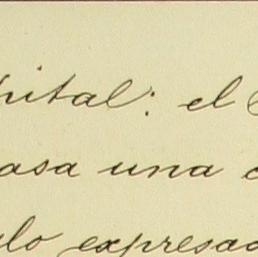 pital: el
asa una
lo expresa